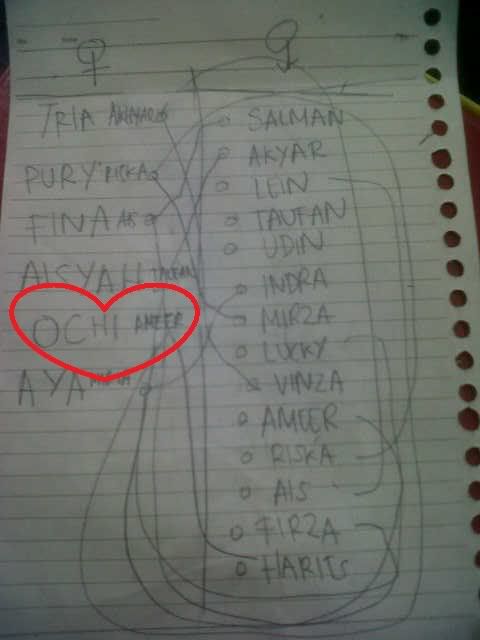 TRIA
PURY RISKA
FINA AIS
AISYAH TAUFAN
OCHI AMEER
AYA
SALMAN
AKYAR
LEIN
TAUFAN
UDIN
INDRA
MIRZA
LUCKY
VINZA
AMEER
RISKA
AIS
FIRZA
HARITS